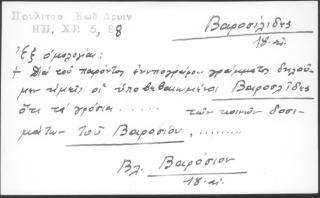 Πουλίτσα Κωδ. Λουιν
ΗΠ, ΧΡ. 5, 88
Βαροσιλίδες
18. αἰ.
Ἐξ ὁμολογίας:
+ Διὰ τοῦ παρόντος ἐνυπογράφου γράμματος δηλοῦ-
μεν ἡμεῖς οἱ ὑποβεβαιωμένοι Βαροσλῖδες
ὅτι τὰ γρόσια ..... τῶν κοινῶν δοσι-
μάτων τοῦ Βαροσίου, ........
Βλ. Βαρόσιον
18. αἰ.